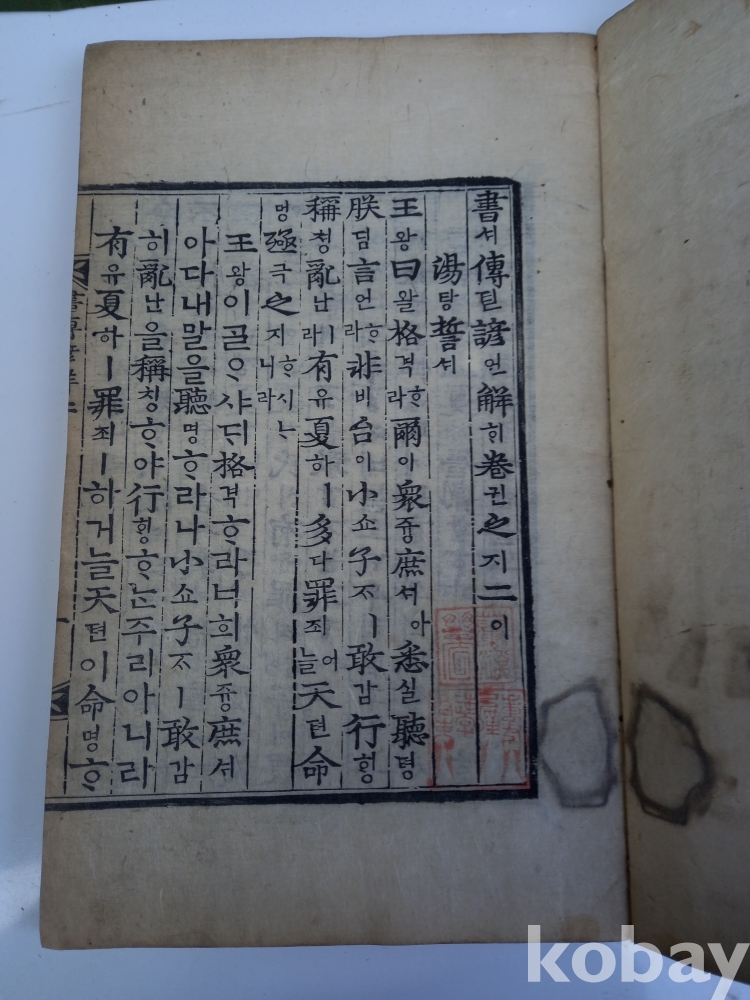 書셔傳뎐諺언解ᄒᆡ卷권之지二이
湯탕誓셔
王왕曰왈格격ᄒᆞ라爾이衆즁庶셔아悉실聽텽
朕딤言언ᄒᆞ라非비台이小쇼子ᄌᆞㅣ敢감行ᄒᆡᆼ
稱칭亂난ㅣ라有유夏하ㅣ多다罪죄어늘天텬命
명殛극之지ᄒᆞ시ᄂᆞ니라
王왕이ᄀᆞᆯᄋᆞ샤ᄃᆡ格격ᄒᆞ라너희衆즁庶셔
아다내말을聽텽ᄒᆞ라나小쇼子ᄌᆞㅣ敢감
히亂난을稱칭ᄒᆞ야行ᄒᆡᆼᄒᆞᄂᆞᆫ주리아니라
有유夏하ㅣ罪죄ㅣ하거늘天텬이命명ᄒᆞ
kobay